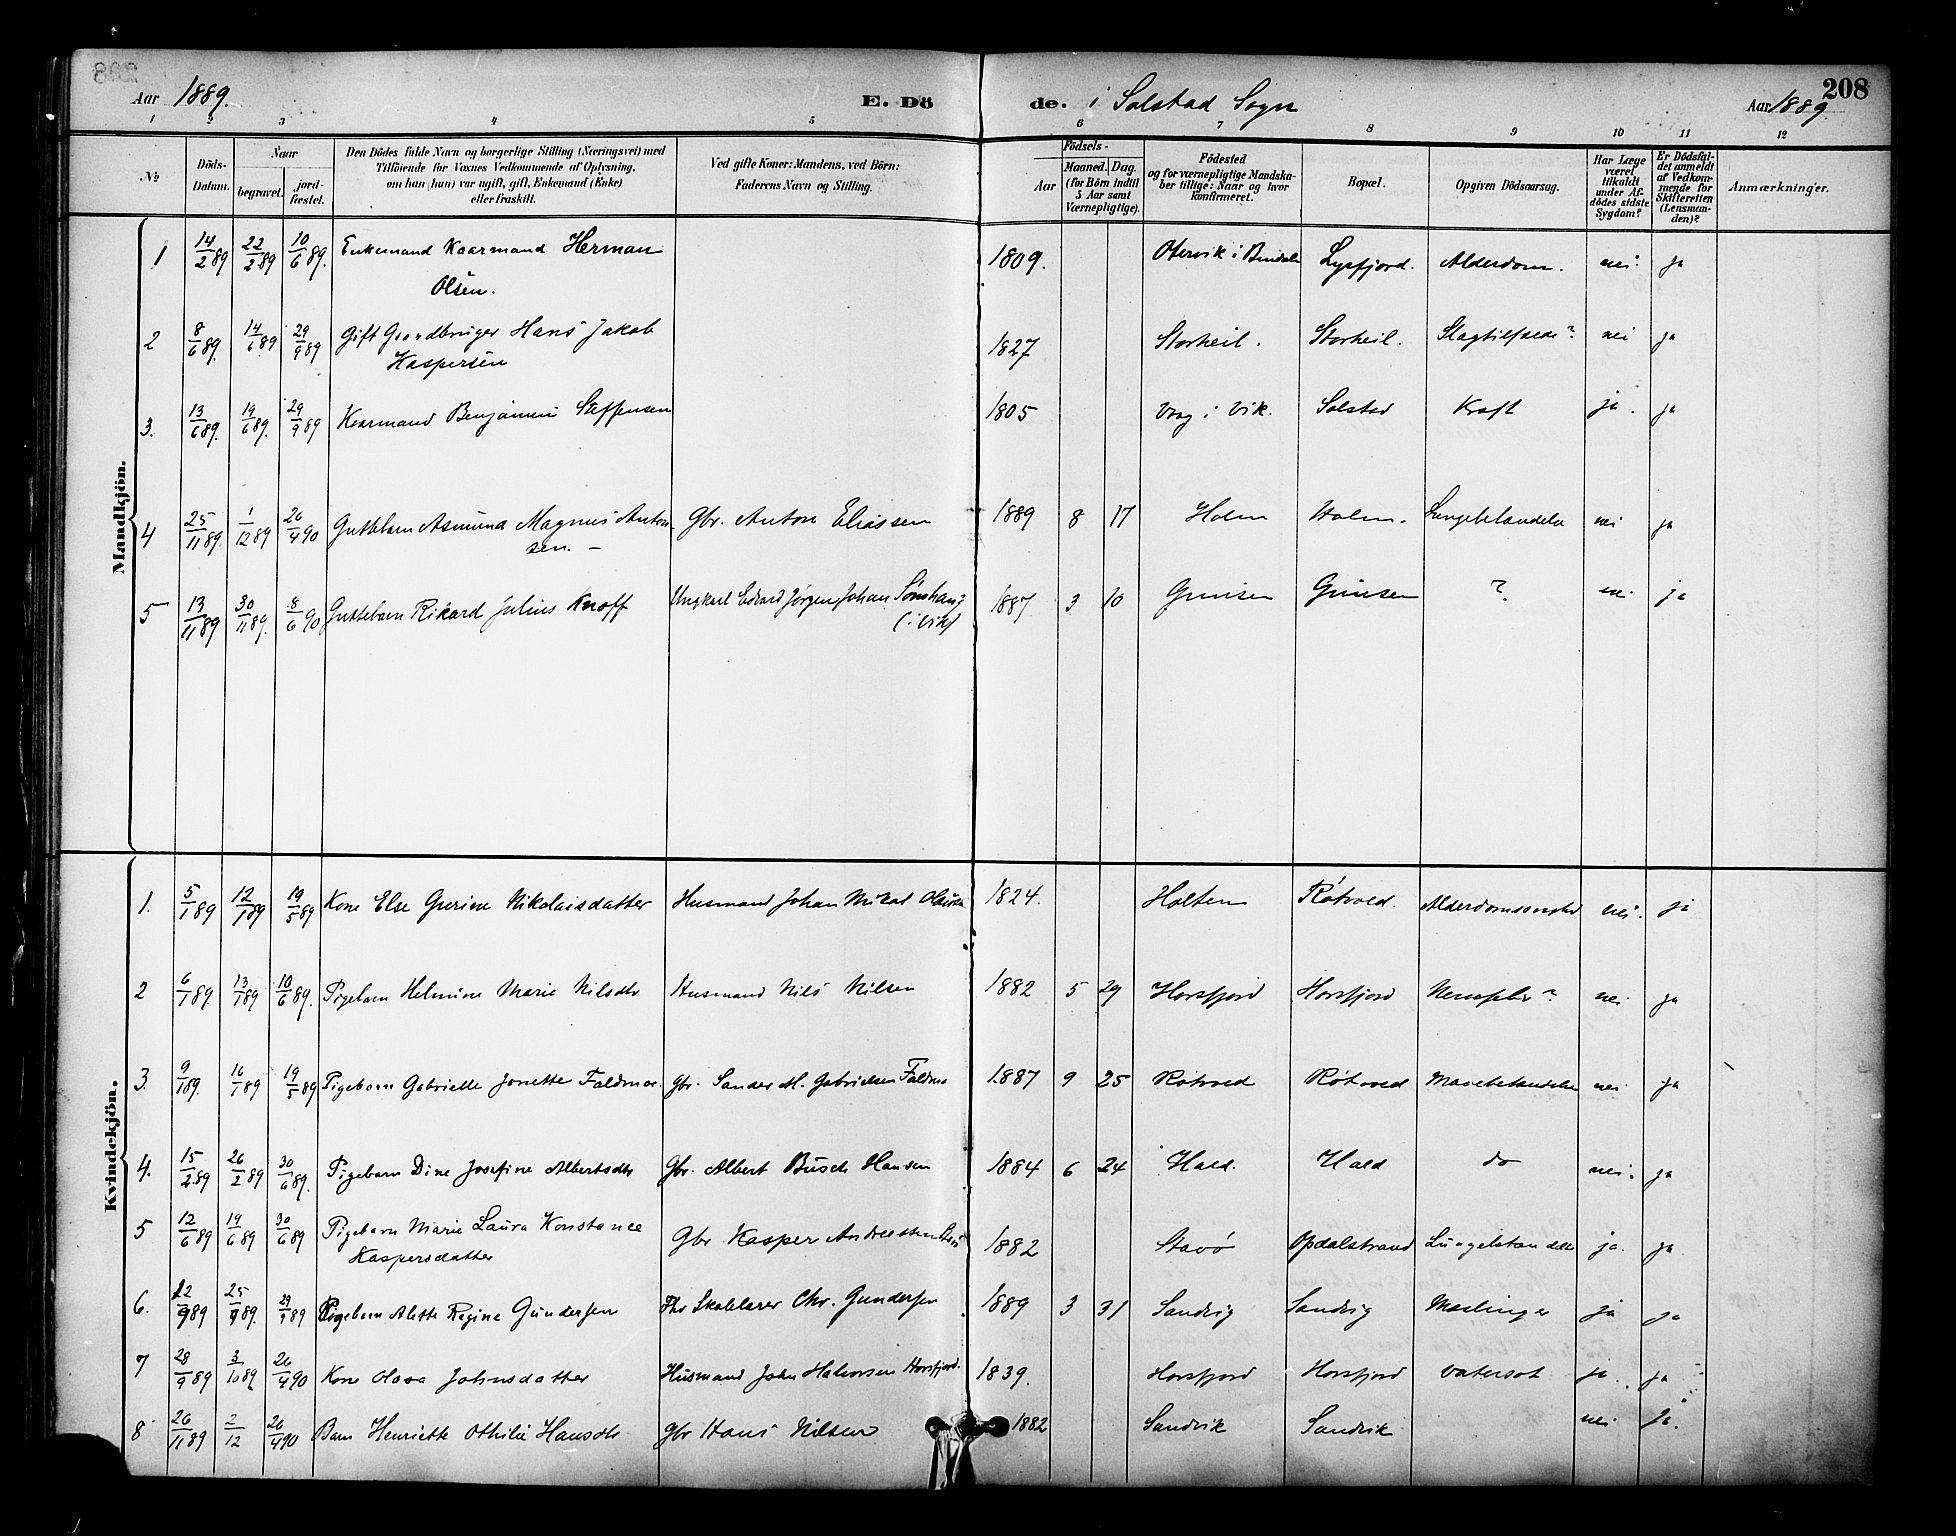 208
Aar 1889. E. Dö de. i Solstad Sogn Aar 1889.
1 2 3 4 5 6 7 8 9 10 11 12
No
Döds-Datum.
Naar
begravet.
jord-fæstet.
Den Dödes fulde Navn og borgerlige Stilling (Næringsvei) med
Tilföiende for Voxnes Vedkommende af Oplysning,
om han (hun) var ugift, gift, Enkemand (Enke)
eller fraskilt.
Ved gifte Koner: Mandens, ved Börn:
Faderens Navn og Stilling.
Födsels-
Aar
Maaned. Dag.
(for Börn indtil
5 Aar samt
Værnepligtige).
Födested
og for værnepligtige Mandska-
ber tillige: Naar og hvor
konfirmeret.
Bopæl.
Opgiven Dödsaarsag.
Har Læge
været
tilkaldt
under Af-
dödes sidste
Sygdom?
Er Dödsfal-
det anmeldt
af Vedkom-
mende for
Skifteretten
(Lensman-
den)?
Anmærkninger.
Mandkjön.
1 14/2 89 22/2 89 10/6 89. Enkemand Kaarmand Herman 1809. Otervik i Bindalen Lysfjord. Alderdom. nei ja
Olsen.
2 8/6 89. 14/6 89 29/9 89 Gift Gaardbruger Hans Jakob 1827 Storheil. Storheil. Slagtilfælde? nei ja
Kaspersen
3. 13/6 89. 19/6 89. 29/9 89 Kaarmand Benjamin Steffensen 1805 Vaag i Vik. Solstad Kræft ja. ja
4 25/11 89. 1/12 89 26/4 90 Guttebarn Asmund Magnus Anton- Gbr. Anton Eliassen 1889 8 17 Holm Holm. Lungebetændelse nei ja
sen. -
5 13/11 89 30/11 89. 8/6 90 Guttebarn Rikard Julius Knoff Ungkarl Edvard Jørgen Johan 1887 3 10 Grimsen Grimsen ? nei ja
(i Vik)
Kvindekjön.
1. 5/1 89 12/1 89 19/5 89 Kone Else Gurine Nikolaisdatter Husmand Johan Mikal 1824. Holten Røtvold. nei. ja
2 6/1 89 13/1 89 10/6 89. Pigebarn Helmine Marie Nilsdtr Husmand Nils Nilsen 1882 5 29 Horsfjord Horsfjord nei ja
3. 9/1 89. 16/1 89 19/5 89 Pigebarn Gabrielle Jonette Faldmo. Gbr. Sander M. Gabrielsen Faldmo 1887 9 25 Røtvold Røtvold Mavebetændelse nei ja
4. 15/2 89 26/2 89 30/6 89. Pigebarn Dine Josefine Albertsdtr Gbr. Albert Busch Hansen 1884 6 24 Hald. Hald do nei. ja
5 12/6 89 19/6 89 30/6 89 Pigebarn Marie Laura Konstance Gbr Kasper Andreassen 1882 Stavø Opdalstrand ja. ja
Kaspersdatter
6. 12/9 89 25/9 89. 29/9 89 Pigebarn Alette Regine Gundersen Fhv Skolelærer Chr. Gundersen 1889 3 31 Sandvig Sandvig Meslinger ja ja
7 28/9 89 3/10 89 26/4 90 Kone Olava Johnsdatter Husmand John Halvorsen Horsfjord. 1839. Horsfjord Horsfjord Vatersot ja. ja
8 26/11 89 2/12 26/4 90 Barn Henriette Othilie Hansdtr Gbr Hans Nilsen 1882 Sandvik Sandvik nei ja.